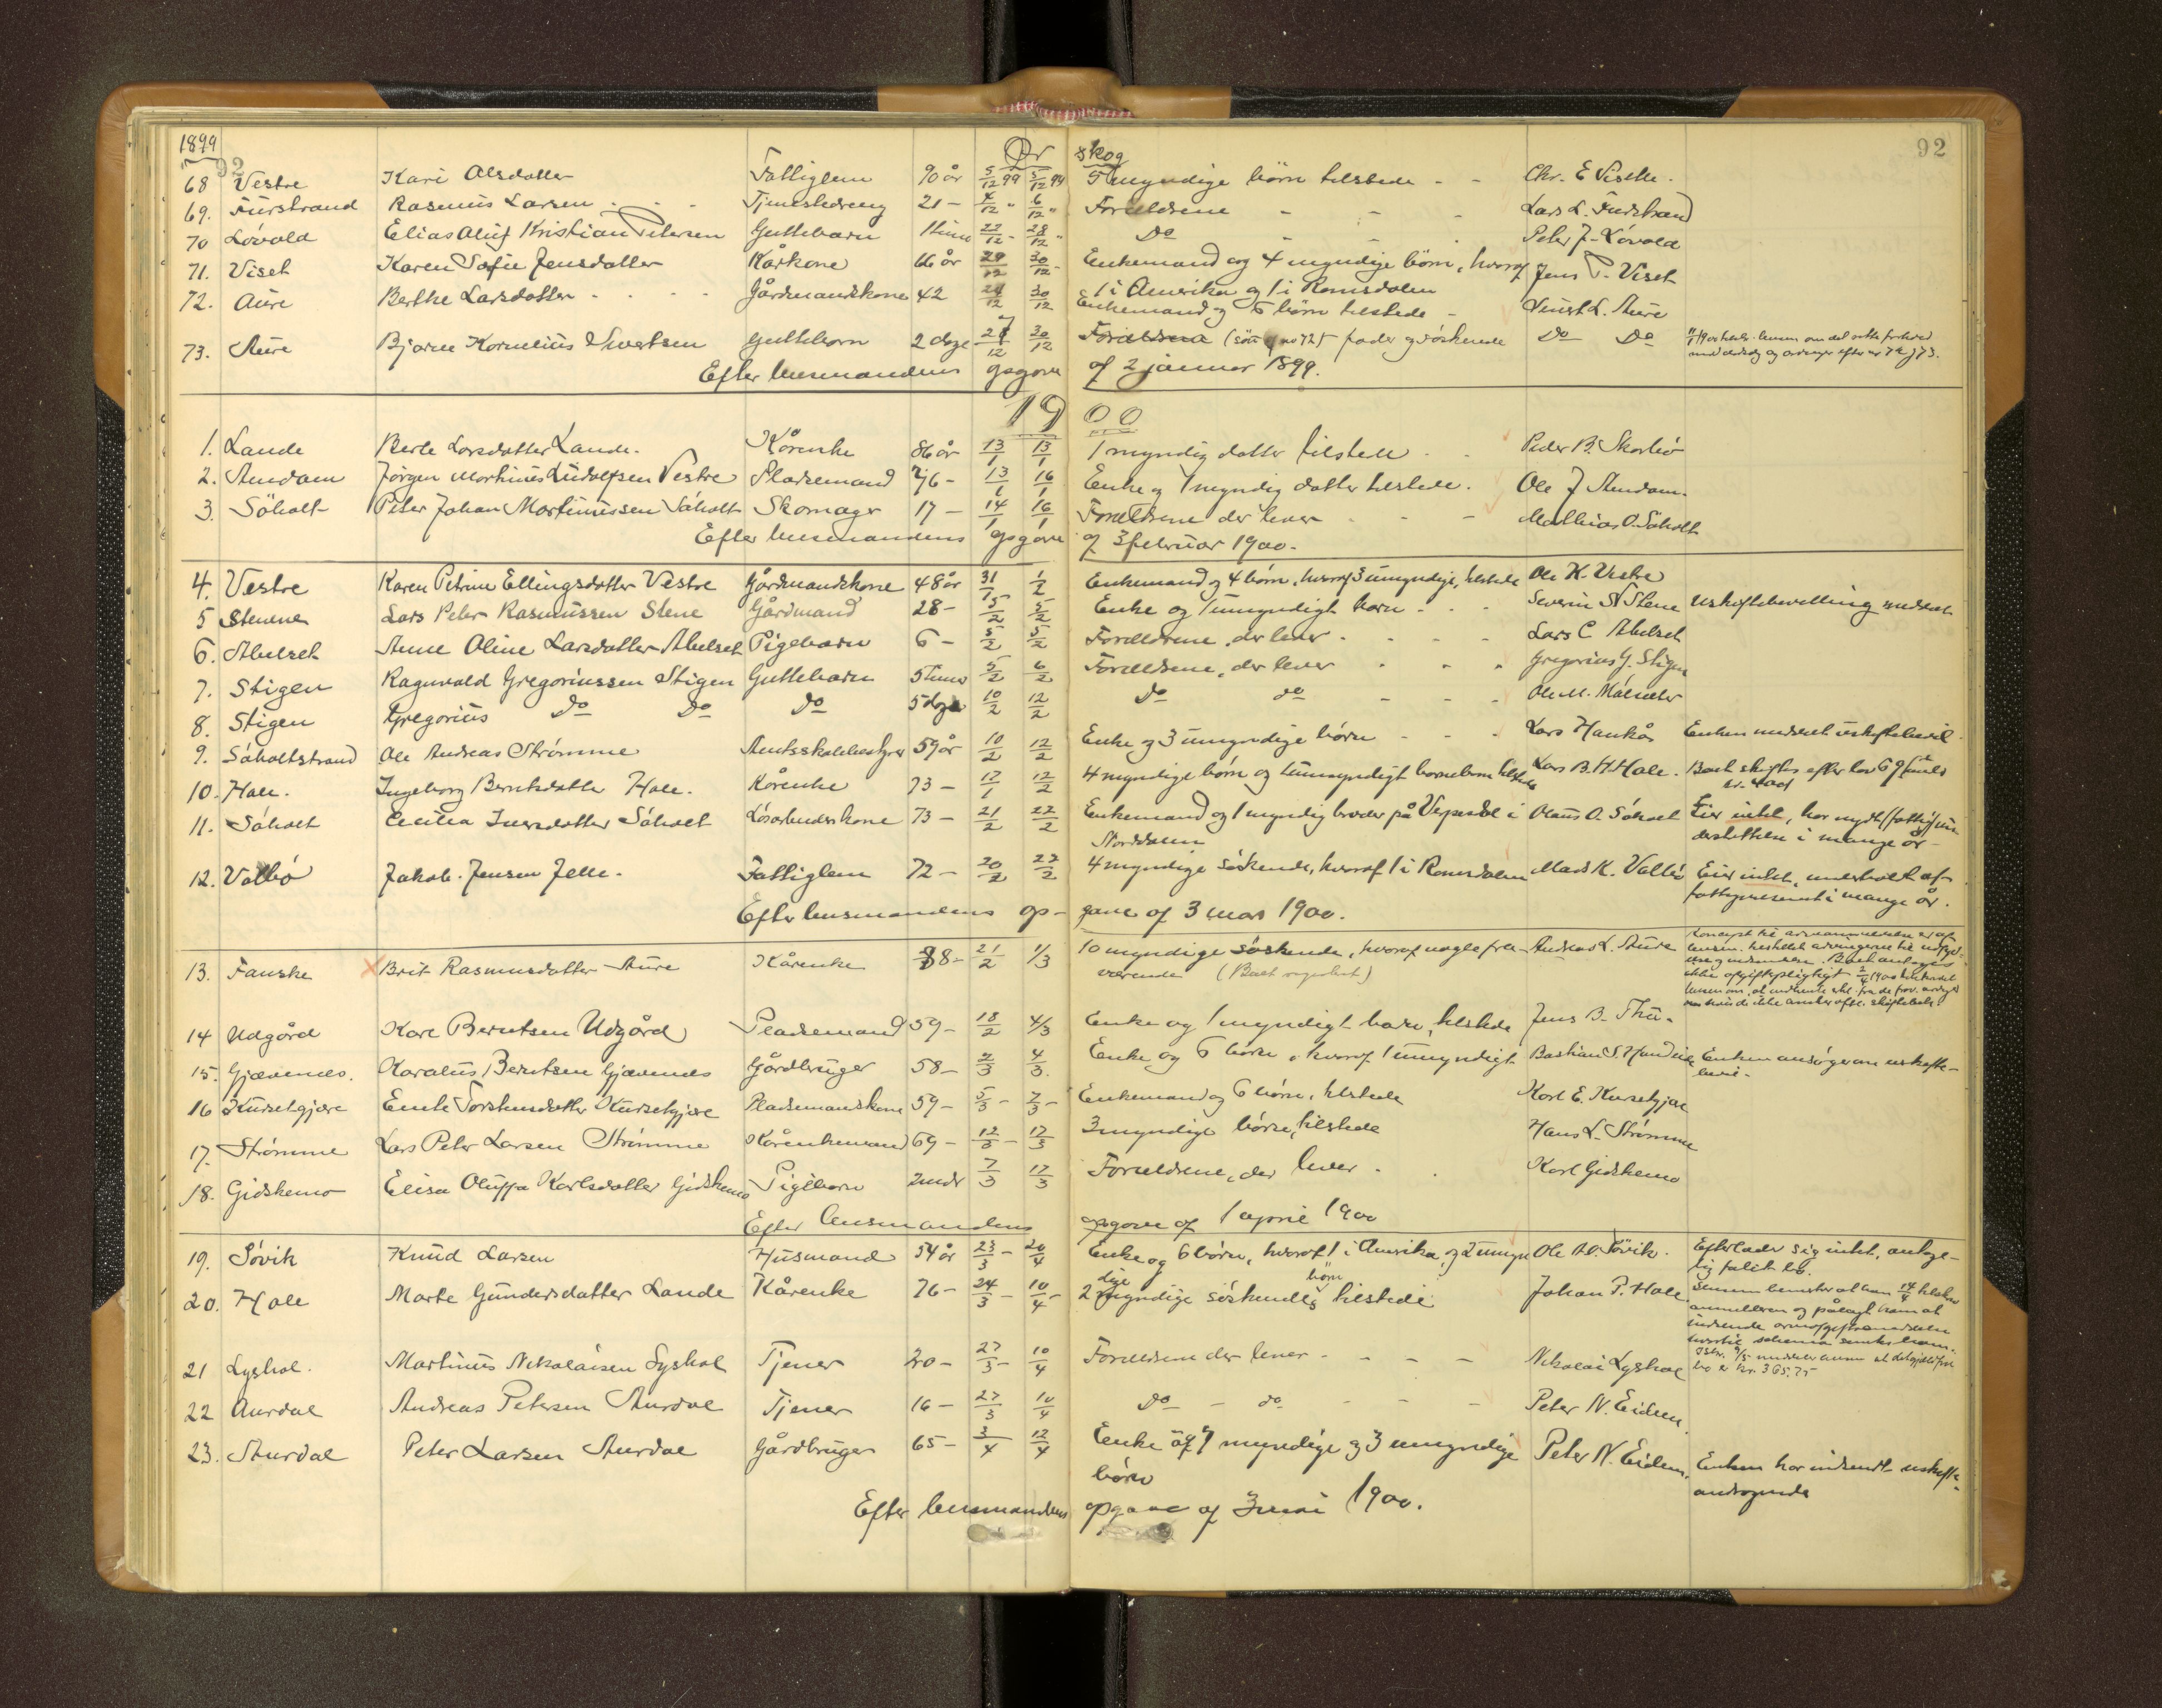 1899
92
Ør skog
92
68 Vestre Kari Olsdatter Fattiglem 90 år 5/12 99 5/12 99 5 myndige børn tilstede - - Chr. E Vestre.
69. Furstrand Rasmus Larsen Tjenestedreng 21 - 4/12 " 6/12 " Forældrene - - - Lars L. Furstrand
70 Løvold Elias Oluf Kristian Petersen Guttebarn 1 time 22/12 - 28/12 " Do Peter J. Løvold
71. Viset Karen Sofie Jensdatter Kårkone 66 år 29/12 30/12 - Enkemand og 4 myndige børn, hvoraf Jens P. Viset
1 i Amerika og 1 i Romsdalen
72. Aure Berthe Larsdatter Gårdmandskone 42 24/12 30/12 Enkemand og 6 børn tilstede - Sivert L. Aure
73. Aure Bjarne Kornelius Sivertsen Guttebarn 2 dage 27/12 30/12 Forældrene (søn af no 72) fader og søskende Do Do
Efter lensmandens opgave af 2 januar 1899.
1900
1. Lande Berte Larsdatter Lande. Kårenke 86 år 13/1 13/1 1 myndig datter tilstede - - Peder B. Skorbø
2. Amdam Jørgen Martinus Ludolfsen Vestre Pladsemand 76 - 13/1 16/1 Enke og 1 myndig datter tilstede. Ole J Amdam.
3. Søholt Peter Johan Martinussen Søholt Skomager 17 - 14/1 16/1 Forældrene der lever - - - Mathias O. Søholt
Efter lensmandens opgave af 3 februar 1900.
4. Vestre Karen Petrine Ellingsdatter Vestre Gårdmandskone 48 år 31/1 1/2 Enkemand og 4 børn, hvoraf 3 umyndige, tilstede Ole K. Vestre
5 Stenene Lars Peter Rasmussen Stene Gårdmand 28 - 5/2 5/2 Enke og 1 umyndigt barn - - - Severin S. Stene Uskiftebevilling meddelt
6. Abelset Anne Oline Larsdatter Abelset Pigebarn 6 - 5/2 5/2 Forældrene, der lever - - - - Lars C Abelset
7. Stigen Ragnvald Gregoriussen Stigen Guttebarn 5 timer 5/2 6/2 Forældrene, der lever - - - Gregorius G. Stigen
8. Stigen Gregorius Do Do Do 5 dage 10/2 12/2 Do do - - - Ole M.
9. Søholtstrand Ole Andreas Strømme Amtsskolebestyrer 59 år 10/2 12/2 Enke og 3 umyndige børn - - - Lars Hankås Enken meddelt uskiftebevil.
10. Hole. Ingeborg Berntsdatter Hole. Kårenke 73 - 17/1 12/2 4 myndige børn og 1 umyndigt barnebarn tilstede Lars B. H. Hole. Boet skiftes efter lov
11. Søholt Cecilia Iversdatter Søholt Løsarbeiderskone 73 - 21/2 22/2 Enkemand og 1 myndig broder på i Olaus O. Søholt Eier intet, har nydt (fattig)un-
Norddalen derstøttelse i mange år -
12. Valbø Jakob Jensen Jelle. Fattiglem 72 - 20/2 27/2 4 myndige søskende, hvoraf 1 i Romsdalen Mads K. Valbø Eier intet, underholdt af
fattigvæsenet i mange år.
Efter lensmandens opgave af 3 mars 1900.
13. Fauske Brit Rasmusdatter Aure Kårenke 88 - 21/2 1/3 10 myndige søskende, hvoraf nogle fra- Andreas L. Aure
værende
14 Udgård Kare Berntsen Udgård Pladsemand 59 - 18/2 4/3 Enke og 1 myndigt barn, tilstede Jens B. Thu.
15. Gjævenes. Karolus Berntsen Gjævenes Gårdbruger 58 - 2/3 4/3. Enke og 6 børn, hvoraf 1 umyndigt Bastian S. Enken ansøger om uskifte-
bevil.
16 Kursetgjære Emte Torstensdatter Kursetgjære Pladsemandskone 59 - 5/3 - 7/3 - Enkemand og 6 børn, tilstede Karl E. Kursetgjære
17. Strømme Lars Peter Larsen Strømme Kårenkemand 69 - 12/3 - 17/3 3 myndige børn, tilstede Hans L. Strømme
18. Gidskemo Elisa Oluffa Karlsdatter Gidskemo Pigebarn 2 mdr 7/3 17/3 Forældrene, der lever - Karl Gidskemo
Efter lensmandens opgave af 1 april 1900
19. Søvik Knud Larsen Husmand 54 år 23/3 - 20/4 Enke og 6 børn, hvoraf 1 i Amerika, og 2 umyn- Ole Søvik. Efterlader sig intet, antage-
dige lig fallit bo.
20. Hole Marte Gundersdatter Lande Kårenke 76 - 24/3 - 10/4 - 2 myndige søskendes børn tilstede Johan P. Hole
21 Lyshol. Martinus Nikolaisen Lyshol Tjener 20 - 27/3 - 10/4 Forældrene der lever - - - - Nikolai Lyshol bo er kr. 365,75
22 Aurdal Andreas Petersen Aurdal Tjener 16 - 27/3 10/4 Do - do - - - Peter N. Eidem.
23. Aurdal Peter Larsen Aurdal Gårdbruger 65 - 3/4 12/4 Enke og 7 myndige og 3 umyndige Peter N. Eidem. Enken har indsendt uskifte-
børn andragende
Efter lensmandens opgave af 3 mai 1900.